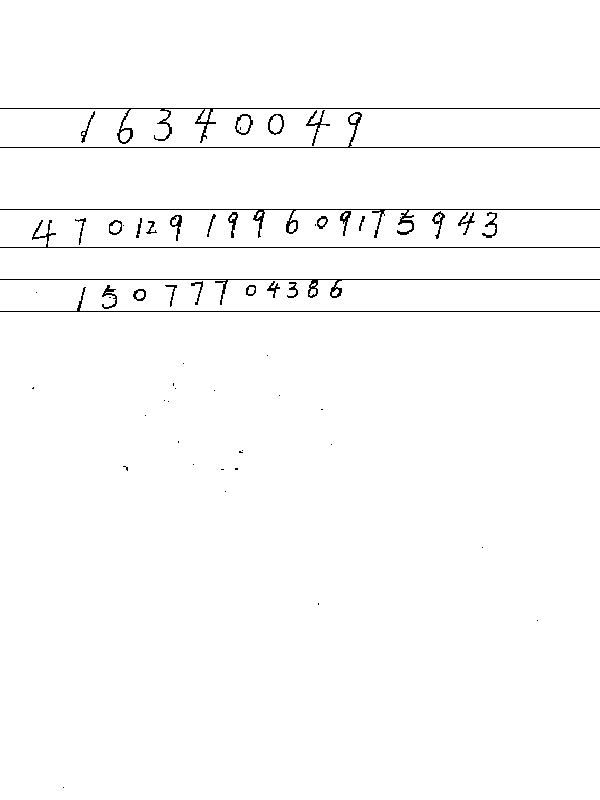 16340049
470129199609175943
15077704386